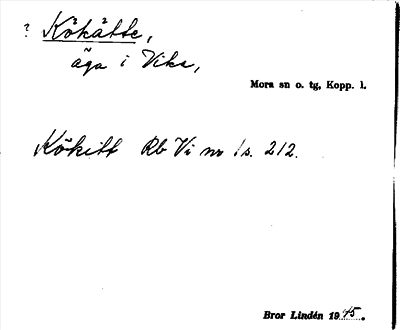 ? Kökätte,
äga i Vika,
Mora sn o. tg, Kopp. l.
Kökitt Rb Vi nr 1 s. 212.
Bror Lindén 1945.